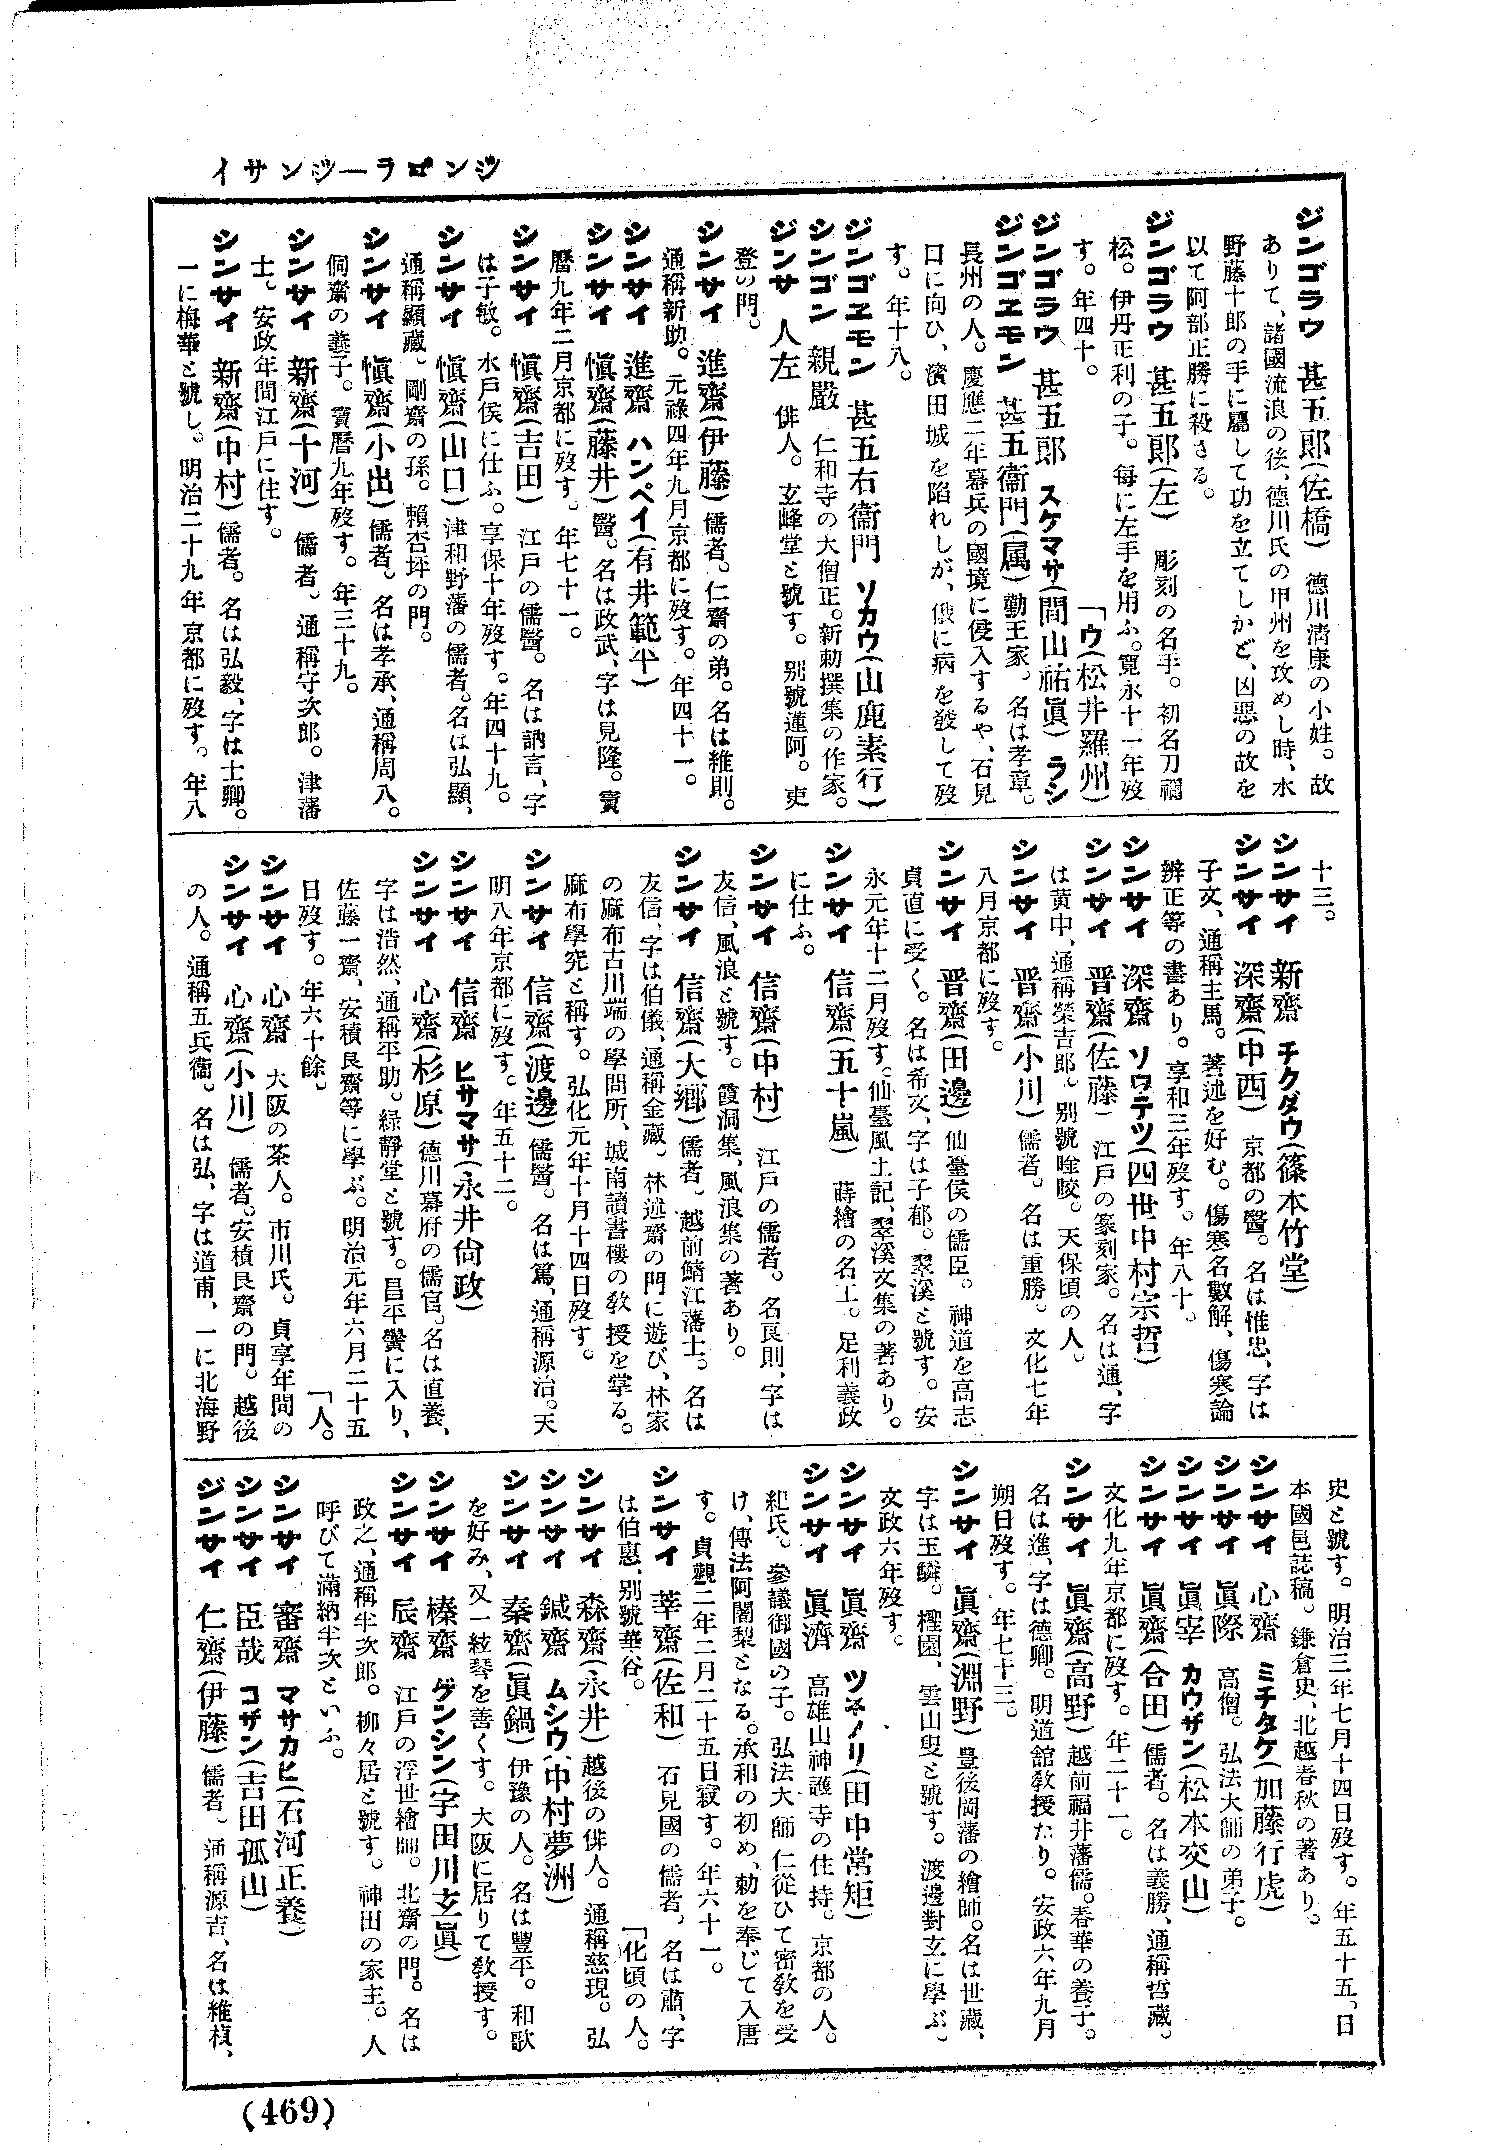 ジンゴラ―ジンサイ
ジンゴラウ 甚五郎(佐橋) 德川淸康の小姓。故
ありて、諸國流浪の後、德川氏の甲州を攻めし時、水
野藤十郎の手に屬して功を立てしかど、凶惡の故を
以て阿部正勝に殺さる。
ジンゴラウ 甚五郎(左) 彫刻の名手。初名刀禰
松。伊丹正利の子。每に左手を用ふ。寬永十一年歿
す。年四十。 「ウ(松井羅州)
ジンゴラウ 甚五郎 スケマサ(間山祐眞) ラシ
ジンゴヱモン 甚五衞門(属) 勤王家。名は孝章。
長州の人。慶應二年幕兵の國境に侵入するや、石見
口に向ひ、濱田城を陷れしが、俄に病を發して歿
す。年十八。
ジンゴヱモン 甚五右衞門 ソカウ(山鹿素行)
シンゴン 親嚴 仁和寺の大僧正。新勅撰集の作家。
ジンサ 人左 俳人。玄峰堂と號す。別號蓮阿。吏
登の門。
シンサイ 進齋(伊藤) 儒者。仁齋の弟。名は維則。
通稱新助。元祿四年九月京都に歿す。年四十一。
シンサイ 進齋 ハンペイ(有井範平)
シンサイ 愼齋(藤井) 醫。名は政武、字は見隆。寶
曆九年二月京都に歿す。年七十一。
シンサイ 愼齋(吉田) 江戶の儒醫。名は訥言、字
は子敏。水戶侯に仕ふ。享保十年歿す。年四十九。
シンサイ 愼齋(山口) 津和野藩の儒者。名は弘顯、
通稱顯藏。剛齋の孫。賴杏坪の門。
シンサイ 愼齋(小出) 儒者。名は孝承、通稱周八。
侗齋の養子。寶曆九年歿す。年三十九。
シンサイ 新齋(十河) 儒者。通稱守次郎。津藩
士。安政年間江戶に住す。
シンサイ 新齋(中村) 儒者。名は弘毅、字は士卿。
一に梅華と號し。明治二十九年京都に歿す。年八
十三。
シンサイ 新齋 チクダウ(篠本竹堂)
シンサイ 深齋(中西) 京都の醫。名は惟忠、字は
子文、通稱主馬。著述を好む。傷寒名數解、傷寒論
辨正等の書あり。享和三年歿す。年八十。
シンサイ 深齋 ソウテツ(四世中村宗哲)
シンサイ 晋齋(佐藤) 江戶の篆刻家。名は通、字
は黃中、通稱榮吉郎。別號睦晈。天保頃の人。
シンサイ 晋齋(小川) 儒者。名は重勝。文化七年
八月京都に歿す。
シンサイ 晋齋(田邊) 仙臺侯の儒臣。神道を高志
貞直に受く。名は希文、字は子郁。翠溪と號す。安
永元年十二月歿す。仙臺風土記、翠溪文集の著あり。
シンサイ 信齋(五十嵐) 蒔繪の名工。足利義政
に仕ふ。
シンサイ 信齋(中村) 江戶の儒者。名良則、字は
友信、風浪と號す。霞洞集、風浪集の著あり。
シンサイ 信齋(大鄕) 儒者。越前鯖江藩士。名は
友信、字は伯儀、通稱金藏。林述齋の門に遊び、林家
の麻布古川端の學問所、城南讀書樓の敎授を掌る。
麻布學究と稱す。弘化元年十月十四日歿す。
シンサイ 信齋(渡邊) 儒醫。名は篤、通稱源治。天
明八年京都に歿す。年五十二。
シンサイ 信齋 ヒサマサ(永井尙政)
シンサイ 心齋(杉原) 德川幕府の儒官。名は直養、
字は浩然、通稱平助。綠靜堂と號す。昌平黌に入り、
佐藤一齋、安積艮齋等に學ぶ。明治元年六月二十五
日歿す。年六十餘。 「人。
シンサイ 心齋 大阪の茶人。市川氏。貞享年間の
シンサイ 心齋(小川) 儒者。安積艮齋の門。越後
の人。通稱五兵衞。名は弘、字は道甫、一に北海野
史と號す。明治三年七月十四日歿す。年五十五、日
本國邑誌稿。鎌倉史、北越春秋の著あり。
シンサイ 心齋 ミチタケ(加藤行虎)
シンサイ 眞際 高僧。弘法大師の弟子。
シンサイ 眞宰 カウザン(松本交山)
シンサイ 眞齋(合田) 儒者。名は義勝、通稱哲藏。
文化九年京都に歿す。年二十一。
シンサイ 眞齋(高野) 越前福井藩儒。春華の養子。
名は進、字は德卿。明道館敎授たり。安政六年九月
朔日歿す。年七十三。
シンサイ 眞齋(淵野) 豊後岡藩の繪師。名は世藏、
字は玉鱗。樫園、雲山叟と號す。渡邊對玄に學ぶ。
文政六年歿す。
シンサイ 眞齋 ツネノリ(田中常矩)
シンサイ 眞濟 高雄山神護寺の住持。京都の人。
紀氏。參議御國の子。弘法大師仁從ひて密敎を受
け、傳法阿闍梨となる。承和の初め、勅を奉じて入唐
す。貞觀二年二月二十五日寂す。年六十一。
シンサイ 莘齋(佐和) 石見國の儒者。名は肅、字
は伯惠、別號華谷。 「化頃の人。
シンサイ 森齋(永井) 越後の俳人。通稱慈現。弘
シンサイ 鍼齋 ムシウ(中村夢洲)
シンサイ 秦齋(眞鍋) 伊豫の人。名は豐平。和歌
を好み、又一絃琴を善くす。大阪に居りて敎授す。
シンサイ 榛齋 ゲンシン(宇田川玄眞)
シンサイ 辰齋 江戶の浮世繪師。北齋の門。名は
政之、通稱半次郎。柳々居と號す。神田の家主。人
呼びて滿納半次といふ。
シンサイ 審齋 マサカヒ(石河正養)
シンサイ 臣哉 コザン(吉田孤山)
ジンサイ 仁齋(伊藤) 儒者。通稱源吉、名は維楨、
(469)